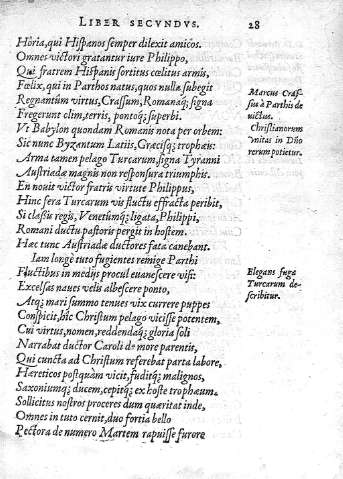 LIBER SECVNDVS. 28
Horia, qui Hispanos semper dilexit amicos.
Omnes victori gratantur iure Philippo,
Qui fratrem Hispanis sortitus cœlitus armis,
Fœlix, qui in Parthos natus, quos nulla subegit
Regnantûm virtus, Crassum, Romanaq; signa
Fregerunt clim, terris, pontoq; superbi.
Vt Babylon quondam Romanis nota per orbem:
Sic nunc Byzantum Latiis, Græcisq; trophæis:
Arma tamen pelago Turcarum, signa Tyranni
Austriadæ magnis non responsura triumphis.
En nouit victor fratris virtute Philippus,
Hinc fera Turcarum vis fluctu effracta peribit,
Si classis regis, Venetûmq; ligata, Philippi,
Romani ductu pastoris pergit in hostem.
Hæc tunc Austriadæ ductores fata canebant.
Iam longè tuto fugientes remige Parthi
Fluctibus in medijs procul euanescere visi:
Excelsas naues velis albescere ponto,
Atq; mari summo tenues vix currere puppes
Conspicit, hîc Christum pelago vicisse potentem,
Cui virtus, nomen, reddendaq; gloria soli
Narrabat ductor Caroli de more parentis,
Qui cuncta ad Christum referebat parta labore,
Hæreticos postquàm vicit, fuditq; malignos,
Saxoniumq; ducem, cepitq; ex hoste trophæum.
Sollicitus nostros proceres dum quæritat inde,
Omnes in tuto cernit, duo fortia bello
Pectora de numero Martem rapuisse furore
Marcus Crassus
à Parthis de
victus.
Christianorum
vnitas in Dño
rerum potietur.
Elegans fuga
Turcarum de-
scribitur.